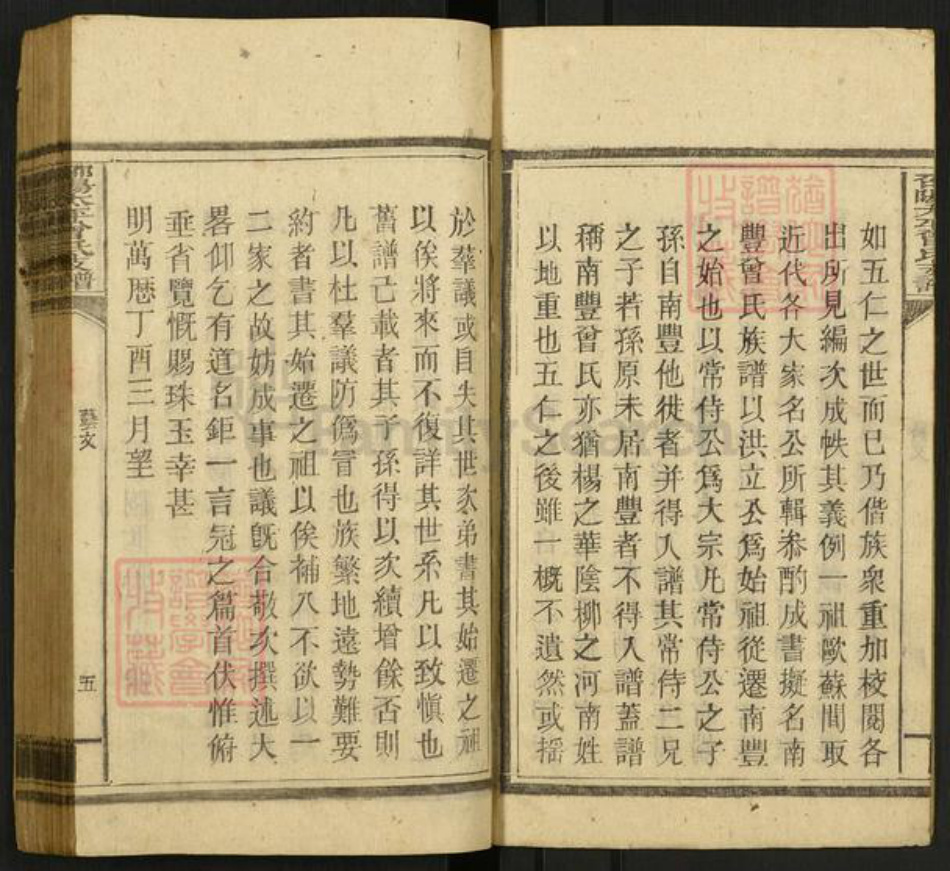 如五仁之世而已乃偕族衆重加校閱各
出所見編次成帙其義例一祖歐蘇間取
近代各大家名公所輯叅酌成書擬名南
豐曾氏族譜以洪立公爲始祖從遷南豐
之始也以常侍公爲大宗凡常侍公之子
孫自南豐他徙者并得入譜其常侍二兄
之子若孫原未居南豐者不得入譜蓋譜
稱南豐曾氏亦猶楊之華陰柳之河南姓
以地重也五仁之後雖一槪不遺然或搖
於羣議或自失其世次弟書其始遷之祖
以俟將來而不復詳其世系凡以致愼也
舊譜已載者其子孫得以次續增餘否則
凡以杜羣議防僞冒也族繁地遠勢難要
約者書其始遷之祖以俟補入不欲以一
二家之故妨成事也議旣合敬次撰述大
畧仰乞有道名鉅一言冠之篇首伏惟俯
垂省覽慨賜珠玉幸甚
明萬曆丁酉三月望
藝文
五
FamilySearch